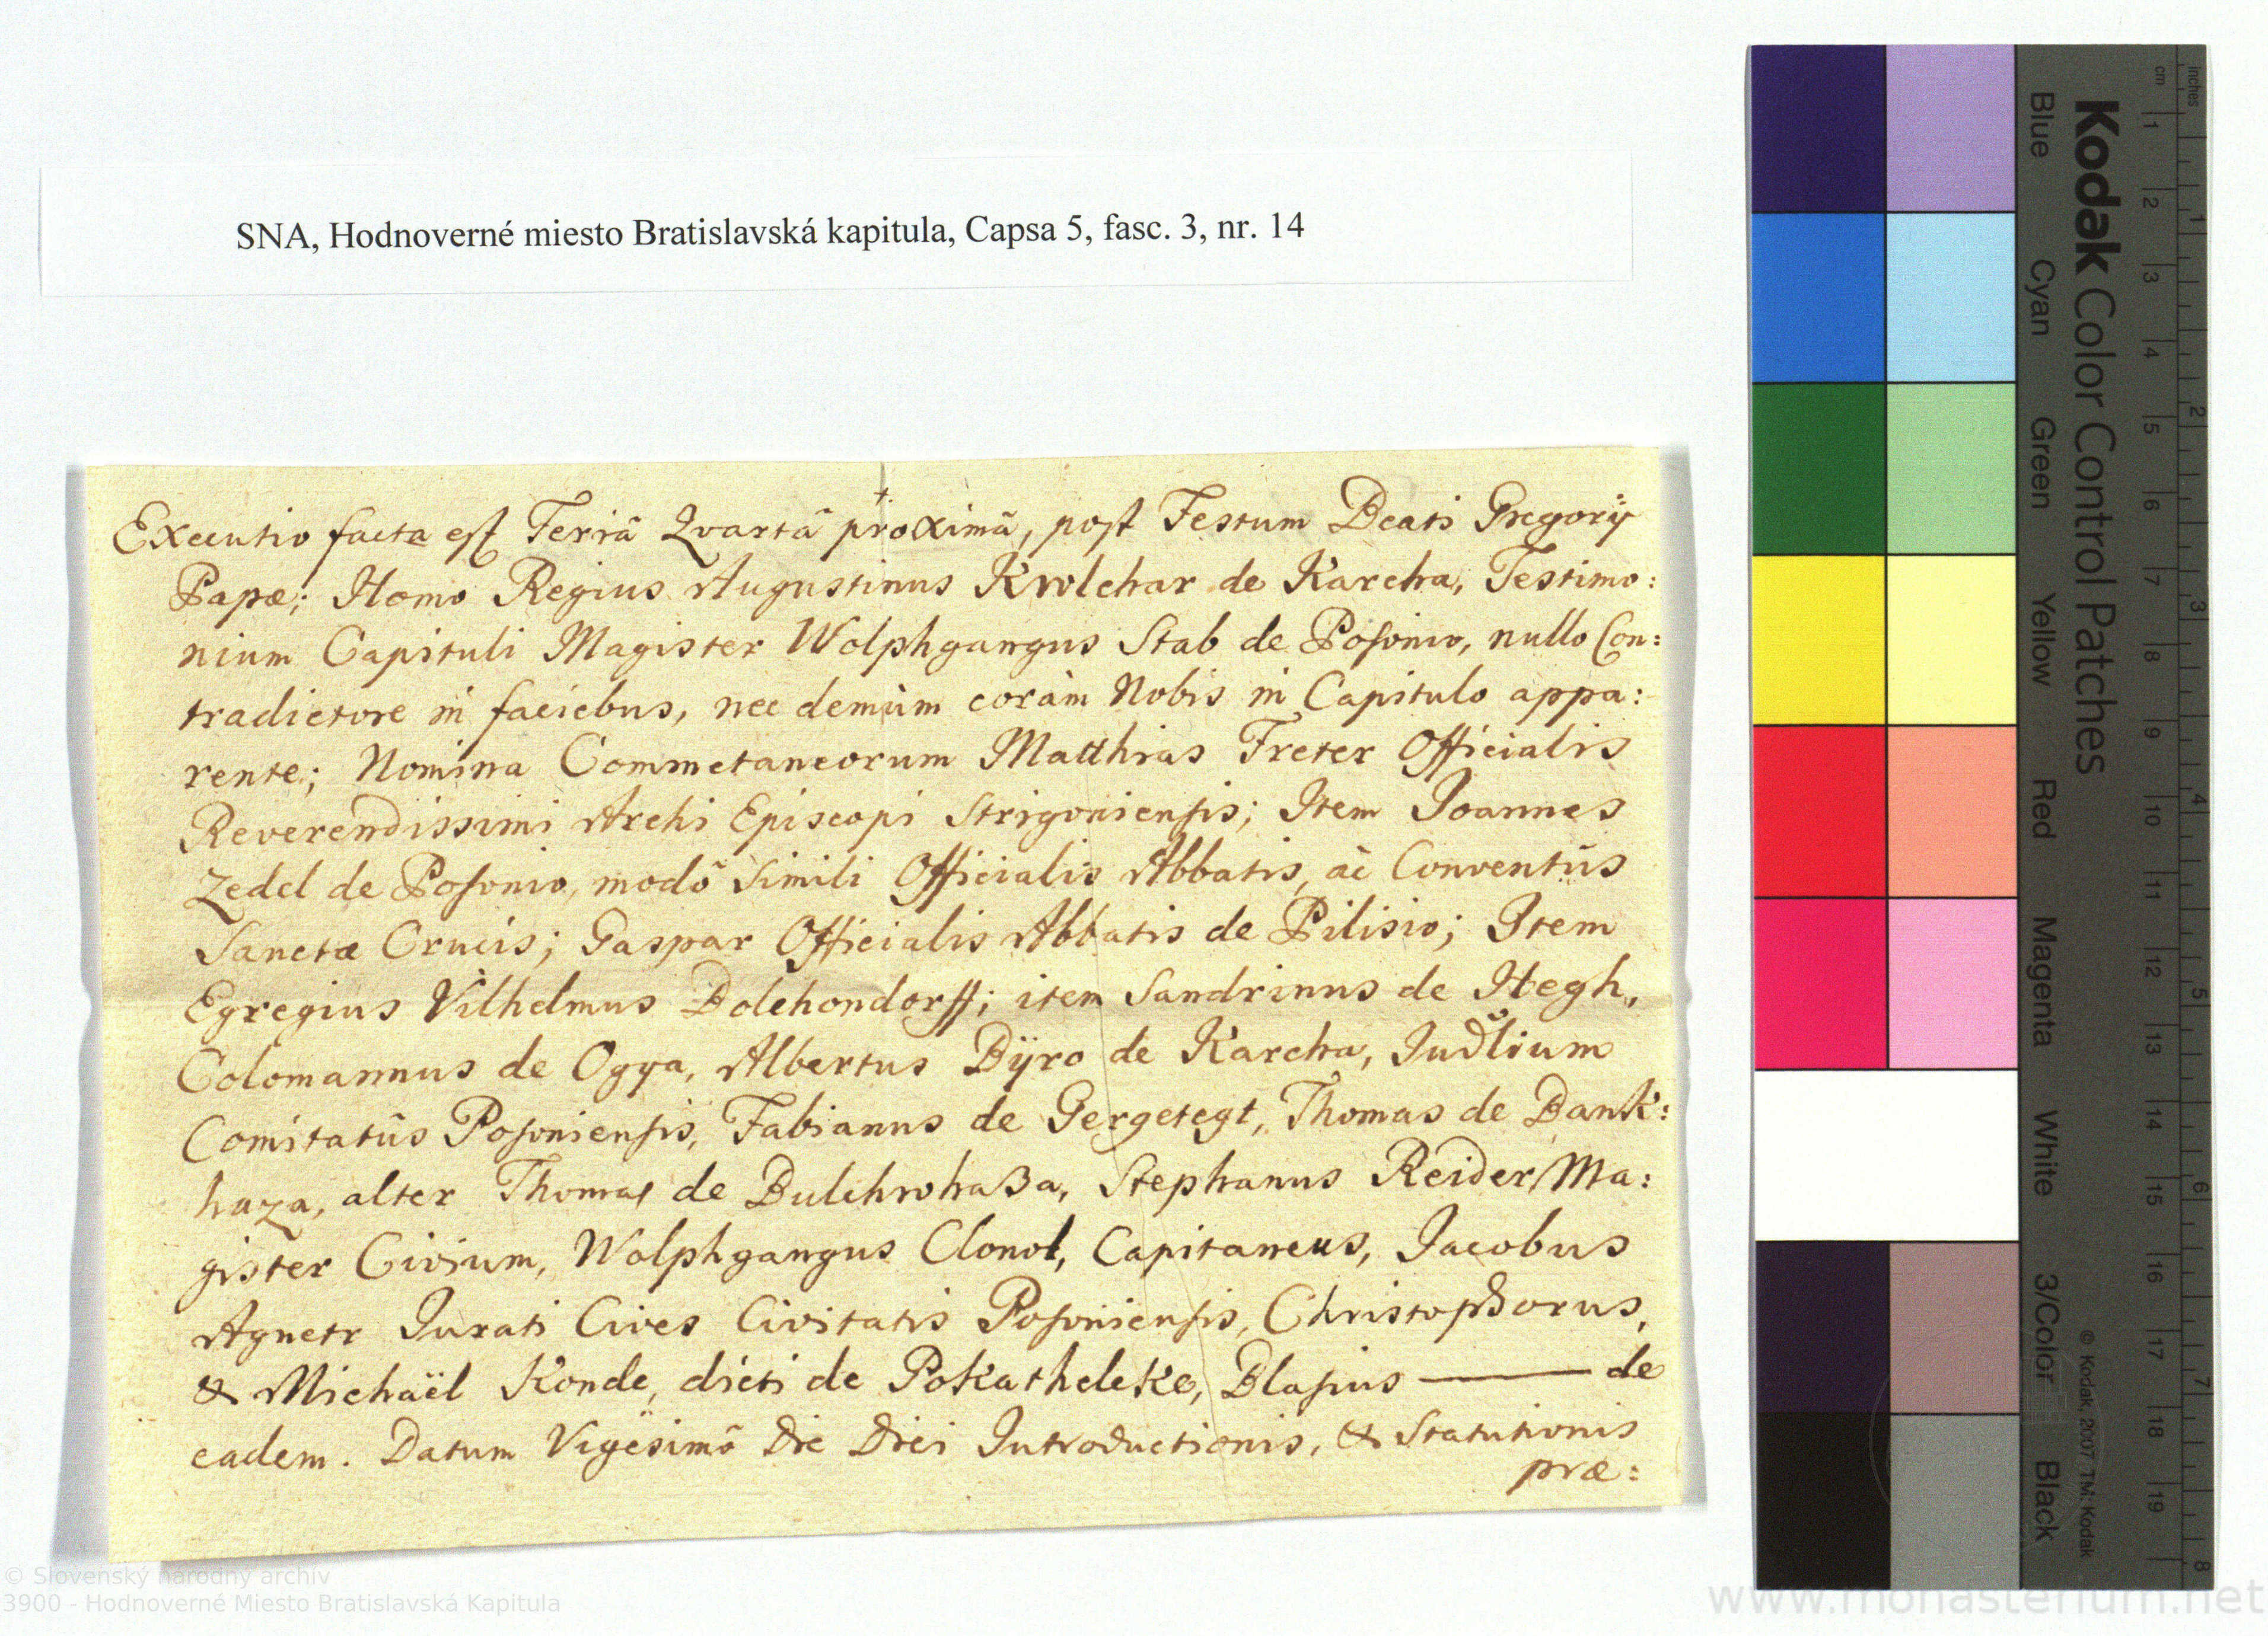 SNA, Hodnoverné miesto Bratislavská kapitula, Capsa 5, fasc. 3, nr. 14
Executio facta est Feriâ Qvartâ proximâ, post Festum Beati Gregorÿ
Papæ; Homo Regius Augustinus Kwlchar de Karcha, Testimo:
nium Capituli Magister Wolphgangus Stab de Posonio, nullo Con:
tradictore in faciebus, nec demùm coràm Nobis in Capitulo appa:
rente; Nomina Commetaneorum Matthias Freter Officialis
Reverendissimi Archi Episcopi Strigoniensis; Item Joannes
Zedel de Posonio, modô Simili Officialis Abbatis, ac Conventûs
Sanctæ Crucis; Gaspar Officialis Abbatis de Pilisio; Item
Egregius Vilhelmus Bolchondorff; item Sandrinus de Hegh,
Colomannus de Ogya, Albertus Bÿro de Karcha, Judlium
Comitatûs Posoniensis, Fabianus de Gergetegt, Thomas de Bank:
haza, alter Thomas de Bulchwhaßa, Stephanus Reider Ma:
gister Civium, Wolphgangus Clonol, Capitaneus, Jacobus
Agnetr Jurati Cives Civitatis Posoniensis, Christophorus,
& Michaël Konde, dicti de Pokatheleke, Blasius ——— de
eadem. Datum Vigesimô Die Diei Introductionis, & Statutionis
præ:
Kodak Color Control Patches
Blue Cyan Green Yellow Red Magenta White 3/Color Black
© Kodak, 2007 TM: Kodak
cm 1 2 3 4 5 6 7 8 9 10 11 12 13 14 15 16 17 18 19
inches 1 2 3 4 5 6 7 8
© Slovenský národný archív
3900 - Hodnoverné Miesto Bratislavská Kapitula
www.monasterium.net